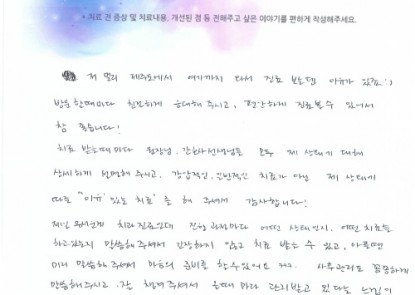 * 치료 전 증상 및 치료내용, 개선된 점 등 전해주고 싶은 이야기를 편하게 작성해주세요.
저 멀리 제주도에서 여기까지 와서 진료 보는덴 이유가 있죠:)
방문할때마다 친절하게 응대해 주시고, 편안하게 진료볼 수 있어서
참 좋습니다!
치료 받을때마다 원장님, 간호사선생님들 모두 제 상태에 대해
상세하게 설명해 주시고, 일반적인 치료가 아닌 제 상태에
따른 "이유 있는 치료"를 해 주셔서 감사합니다!
제일 무서운게 치과진료인데 진행 과정마다 어떤 상태인지, 어떤 치료를
하고있는지 말씀해 주셔서 긴장하지 않고 치료 받을 수 있고, 아플땐
미리 말씀해 주셔서 마음의 준비를 할 수 있어요 ㅋㅋ. 사후관리도 꼼꼼하게
말씀해 주시고, 잘 챙겨주셔서 올때마다 관리받고 있다는 느낌이